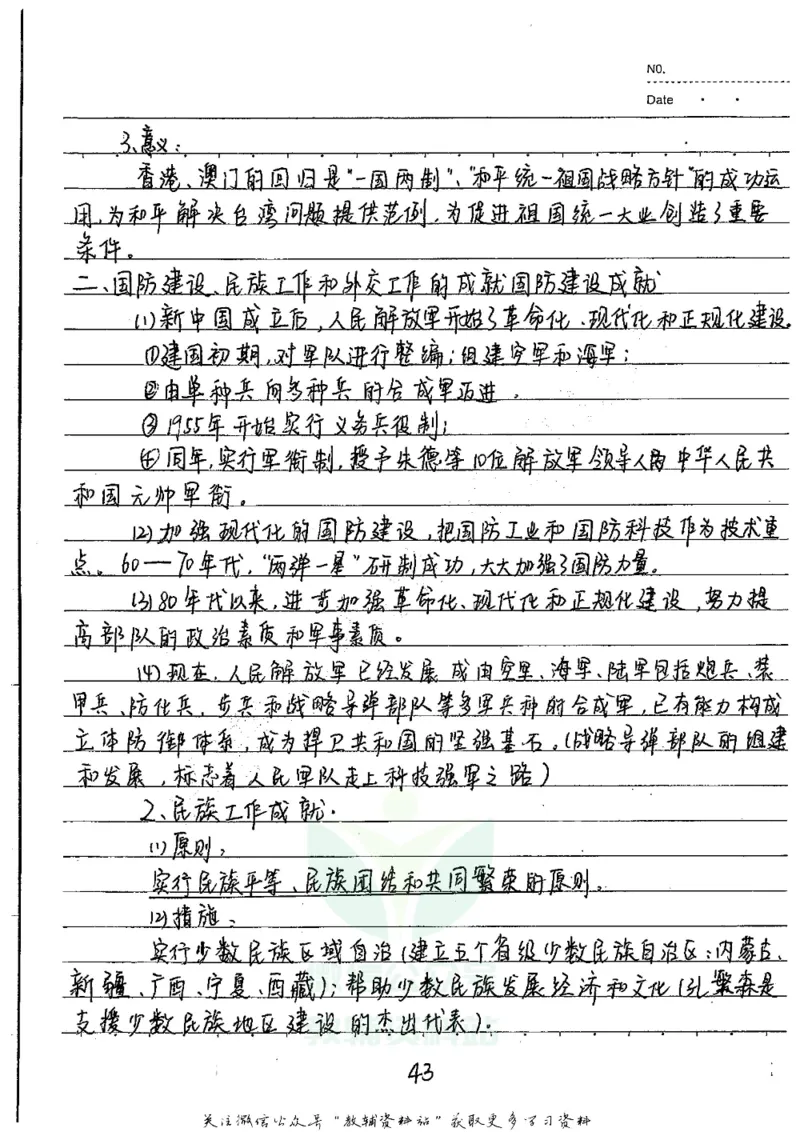 NO.
Date
3、意义:
香港、澳门的回归是"一国两制"、"和平统一祖国战略方针"的成功运
用,为和平解决台湾问题提供范例,为促进祖国统一大业创造了重要
条件。
二、国防建设、民族工作和外交工作的成就国防建设成就
(1)新中国成立后,人民解放军开始了革命化、现代化和正规化建设。
①建国初期,对军队进行整编;组建空军和海军;
②由单种兵向多种兵的合成军迈进.
③1955年开始实行义务兵役制;
④同年,实行军衔制,授予朱德等10位解放军领导人为中华人民共
和国元帅军衔。
(2)加强现代化的国防建设,把国防工业和国防科技作为技术重
点。60—70年代,"两弹一星"研制成功,大大加强了国防力量。
(3)80年代以来,进步加强革命化、现代化和正规化建设,努力提
高部队的政治素质和军事素质。
(4)现在,人民解放军已经发展成由空军、海军、陆军包括炮兵、装
甲兵、防化兵、步兵和战略导弹部队等多军兵种的合成军,已有能力构成
立体防御体系,成为捍卫共和国的坚强基石。(战略导弹部队的组建
和发展,标志着人民军队走上科技强军之路)
2、民族工作成就.
(1)原则:
实行民族平等、民族团结和共同繁荣的原则。
(2)措施:
实行少数民族区域自治(建立五个省级少数民族自治区:内蒙古、
新疆、广西、宁夏、西藏);帮助少数民族发展经济和文化(孔繁森是
支援少数民族地区建设的杰出代表)。
教辅资料站
43
关注微信公众号"教辅资料站"获取更多学习资料